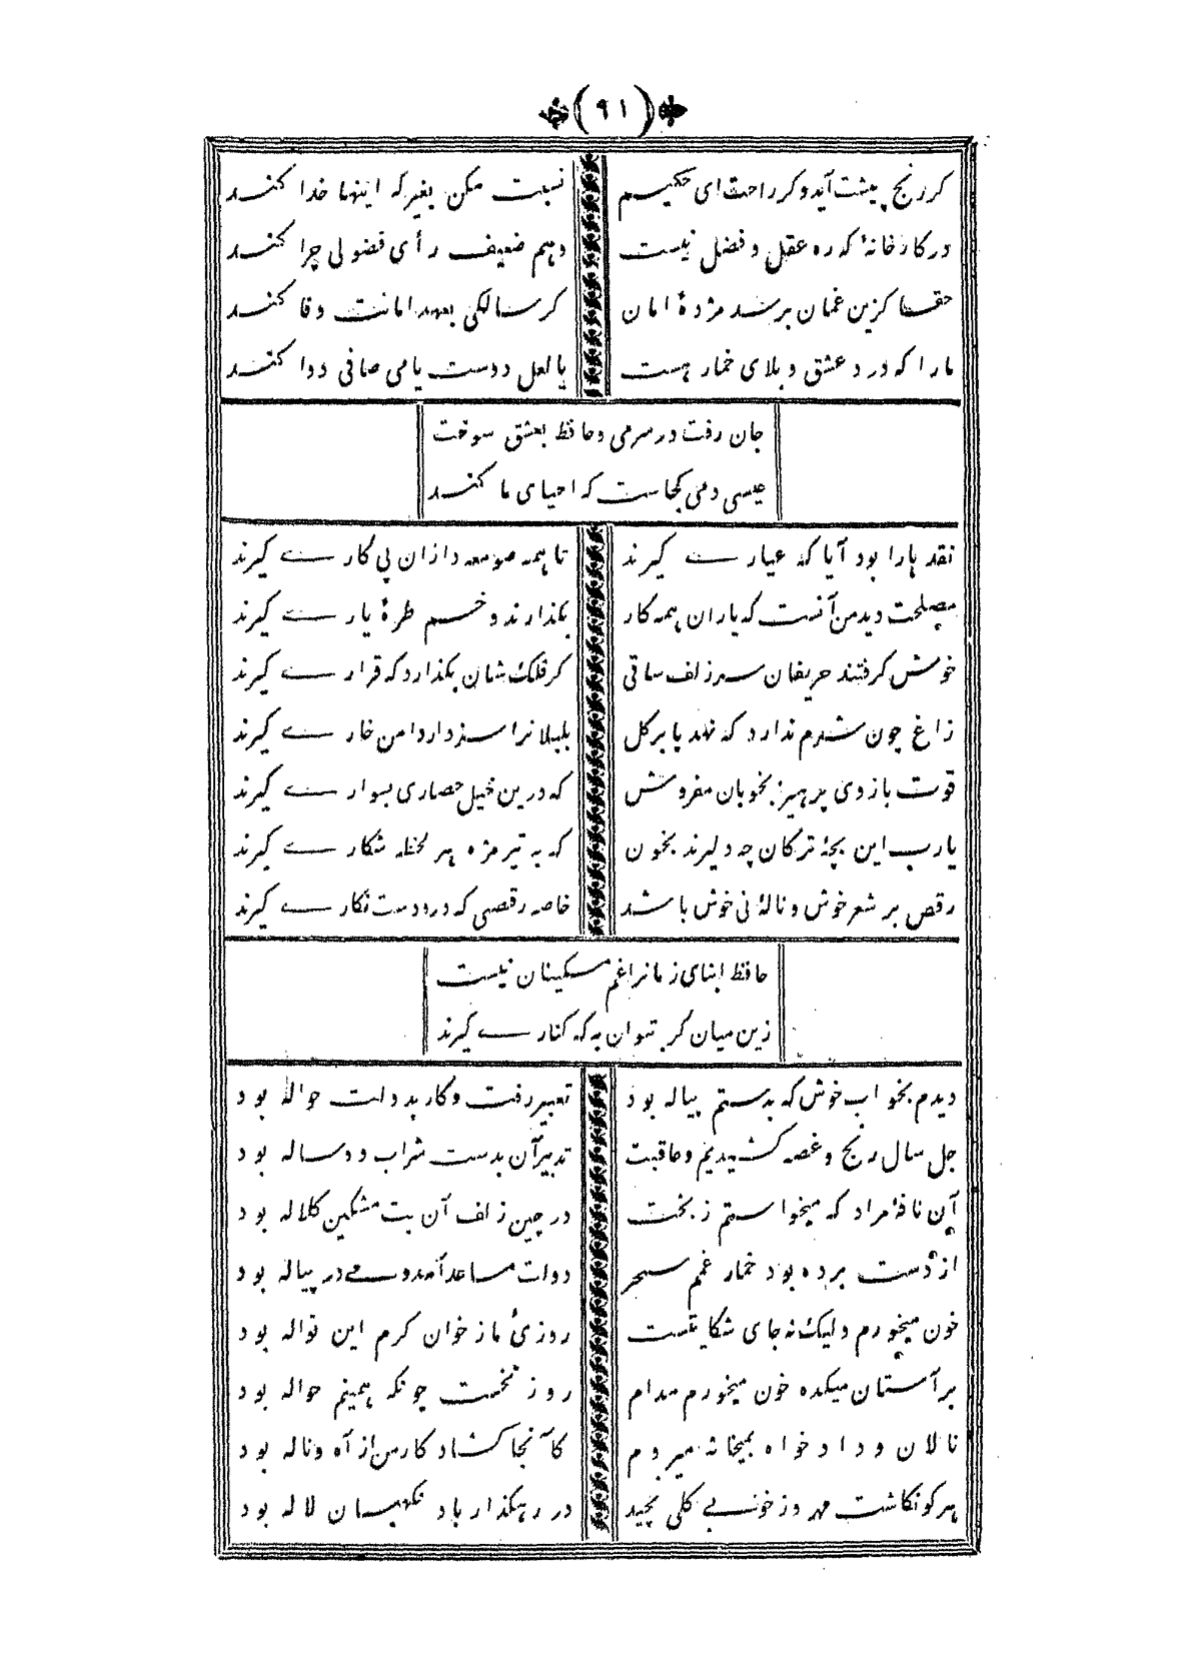 (۹۱)
کر رنج پیشت آید و کر راحت ای حکیم
نسبت مکن بغیر که اینها خدا کند
در کارخانهٔ که ره عقل و فضل نیست
وهم ضعیف رأی فضولی چرا کند
حقا کزین غمان برسد مژدهٔ امان
کر سالکی بعهد امانت وفا کند
مارا که درد عشق و بلای خمار هست
یا لعل دوست یا می صافی دوا کند
جان رفت در سر می و حافظ بعشق سوخت
عیسی دمی کجاست که احیای ما کند
نقد هارا بود آیا که عیار ے کیرند
تا همه صومعه داران پی کار ے کیرند
مصلحت دید من آنست که یاران همه کار
بکذارند و خم طرهٔ یار ے کیرند
خوش کرفتند حریفان سر زلف ساقی
کر فلک شان بکذارد که قرار ے کیرند
زاغ چون شرم ندارد که نهد پا بر کل
بلبلانرا سزد ار دامن خار ے کیرند
قوت بازوی پرهیز بخوبان مفروش
که درین خیل حصاری بسوار ے کیرند
یارب این بچهٔ ترکان چه دلیرند بخون
که به تیر مژه هر لحظه شکار ے کیرند
رقص بر شعر خوش و نالهٔ نی خوش باشد
خاصه رقصی که درو دست نکار ے کیرند
حافظ ابنای زمانرا غم مسکینان نیست
زین میان کر بتوان به که کنار ے کیرند
دیدم بخواب خوش که بدستم پیاله بود
تعبیر رفت و کار بدولت حواله بود
چل سال رنج و غصه کشیدیم و عاقبت
تدبیر آن بدست شراب دو ساله بود
آن نافهٔ مراد که میخواستم ز بخت
در چین زلف آن بت مشکین کلاله بود
از دست برده بود خمار غم سحر
دولت مساعد آمد و مے در پیاله بود
خون میخورم ولیک نه جای شکایتست
روزیٔ ما ز خوان کرم این نواله بود
بر آستان میکده خون میخورم مدام
روز نخست چونکه همینم حواله بود
نالان و دادخواه بمیخانه میروم
کآنجا کشاد کار من از آه و ناله بود
هر کو نکاشت مهر و ز خوبے کلی نچید
در رهکذار باد نکهبان لاله بود